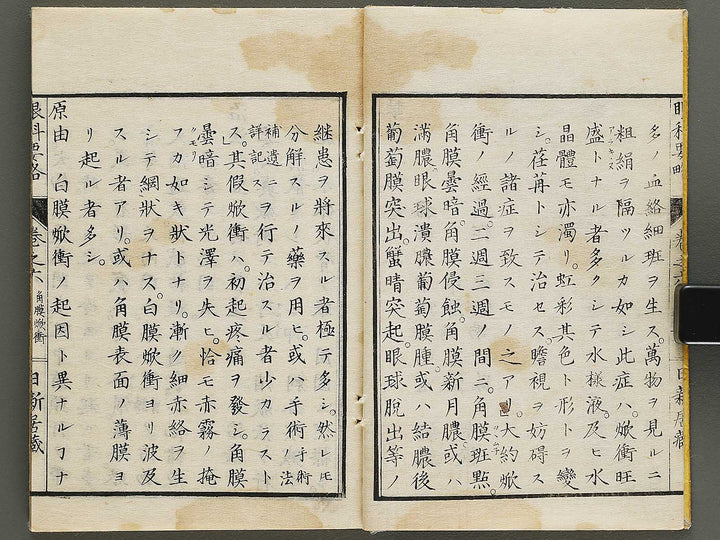 多ノ血絡細斑ヲ生ス。萬物ヲ見ルニ
粗絹ヲ隔ツルカ如シ此症ハ。焮衝旺
アラキヌ
盛トナル者多クシテ水様液。及ヒ水
晶體モ亦濁リ。虹彩其色ト形トヲ變
シ。荏苒トシテ治セス。瞻視ヲ妨碍ス
ルノ諸症ヲ致スモノ之アリ。大約焮
衝ノ經過。二週三週ノ間ニ。角膜斑點。
角膜曇暗。角膜侵蝕。角膜新月膿或ハ
滿膿。眼球潰膿葡萄膜腫。或ハ結膿後
葡萄膜突出。蟹睛突起。眼球脱出等ノ
眼科要略
卷之六
角膜焮衝
日新居藏
繼患ヲ將來スル者極テ多シ。然レモ
分解スルノ藥ヲ用ヒ。或ハ手術手術ノ法
補遺ニ
詳記ス
ヲ行テ治スル者少カラスト
ス。其假焮衝ハ。初起疼痛ヲ發シ。角膜
曇暗シテ光澤ヲ失ヒ。恰モ赤霧ノ掩
クモリ
フカ如キ狀トナリ。漸ク細赤絡ヲ生
シテ網狀ヲナス。白膜焮衝ヨリ波及
スル者アリ。或ハ角膜表面ノ薄膜ヨ
リ起ル者多シ。
原由 白膜焮衝ノ起因ト異ナルコナ